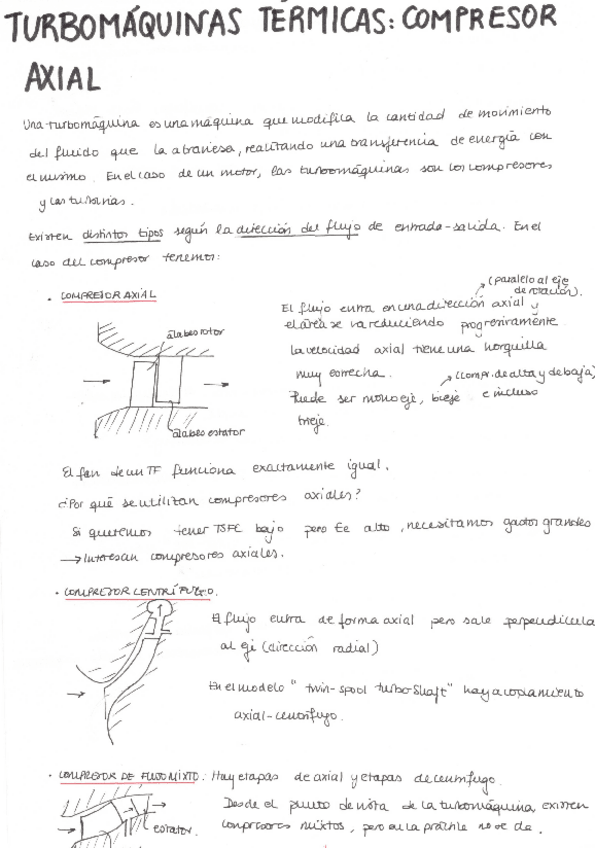 TURBOMÁQUINAS TÉRMICAS: COMPRESOR
AXIAL
Una turbomáquina es una máquina que modifica la cantidad de movimiento
del fluido que la atraviesa, realizando una transferencia de energía con
el mismo. En el caso de un motor, las turbomáquinas son los compresores
y las turbinas.
Existen distintos tipos según la dirección del flujo de entrada-salida. En el
caso del compresor tenemos:
• COMPRESOR AXIAL
(paralelo al eje
de rotación).
El flujo entra en una dirección axial y
el área se va reduciendo progresivamente
la velocidad axial tiene una horquilla
muy estrecha.
(compr. de alta y de baja)
Puede ser monoeje, bieje e incluso
trieje.
álabe rotor
álabe estator
El fan de un TF funciona exactamente igual.
¿Por qué se utilizan compresores axiales?
Si queremos tener TSFC bajo pero Ee alto, necesitamos gastos grandes
→ Interesan compresores axiales.
• COMPRESOR CENTRÍFUGO.
El flujo entra de forma axial pero sale perpendicula
al eje (dirección radial)
En el modelo "twin-spool turboshaft" hay acoplamiento
axial-centrífugo.
• COMPRESOR DE FLUJO MIXTO: Hay etapas de axial y etapas de centrífugo.
Desde el punto de vista de la turbomáquina existen
compresores mixtos, pero en la práctica no se da.
estator.